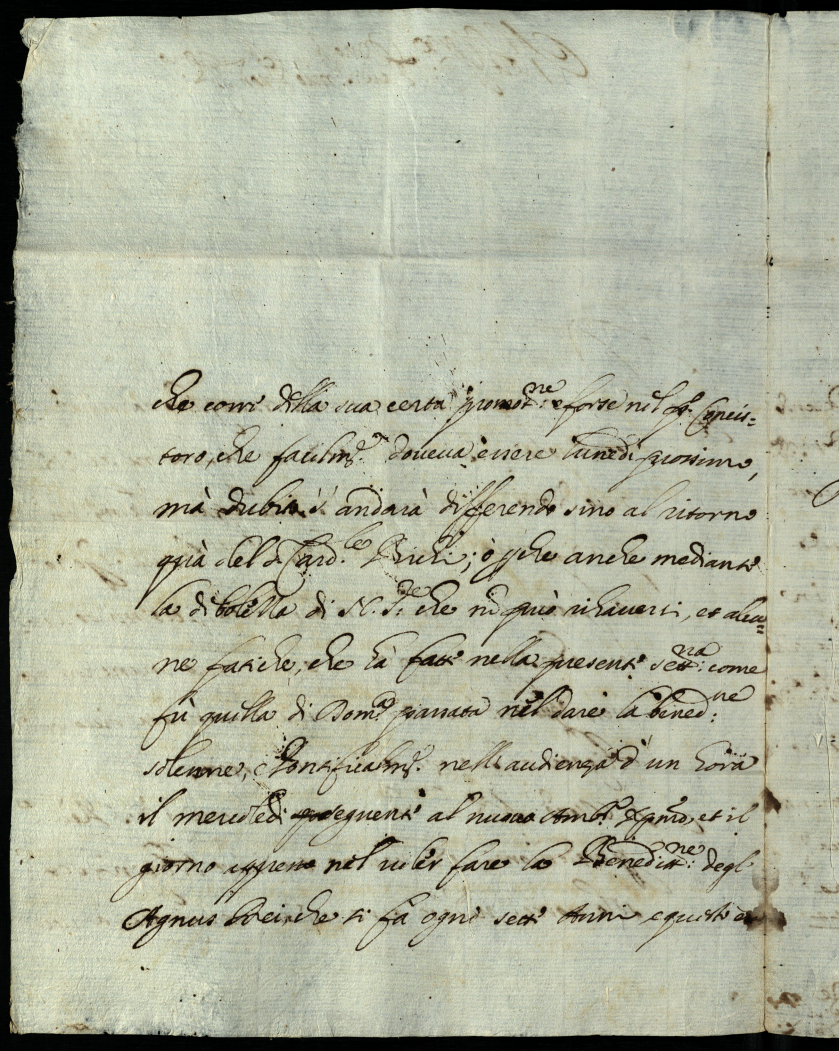 che corre della sua certa promot.ne e forse nel p.o Concis=
toro, che facilm.te doveva essere lunedi prossimo,
mà dubito s' andarà differendo sino al ritorno
quà del S. Card.le Bichi; ò p che anche mediante
la debolezza di N. S.re che nō può rihaversi, et alcu=
ne fatiche, che hà fatte nella presente sett.na: come
fù quella di Dom.ca passata nel dare la bened.ne:
solenne, e Pontificalm.te nell audienza d' un hora
il mercoledi seguente al nuovo Amb.re et il
giorno appresso nel voler fare la Benedict.ne: degl
Agnus Dei, che si fà ogni sette Anni, e queste